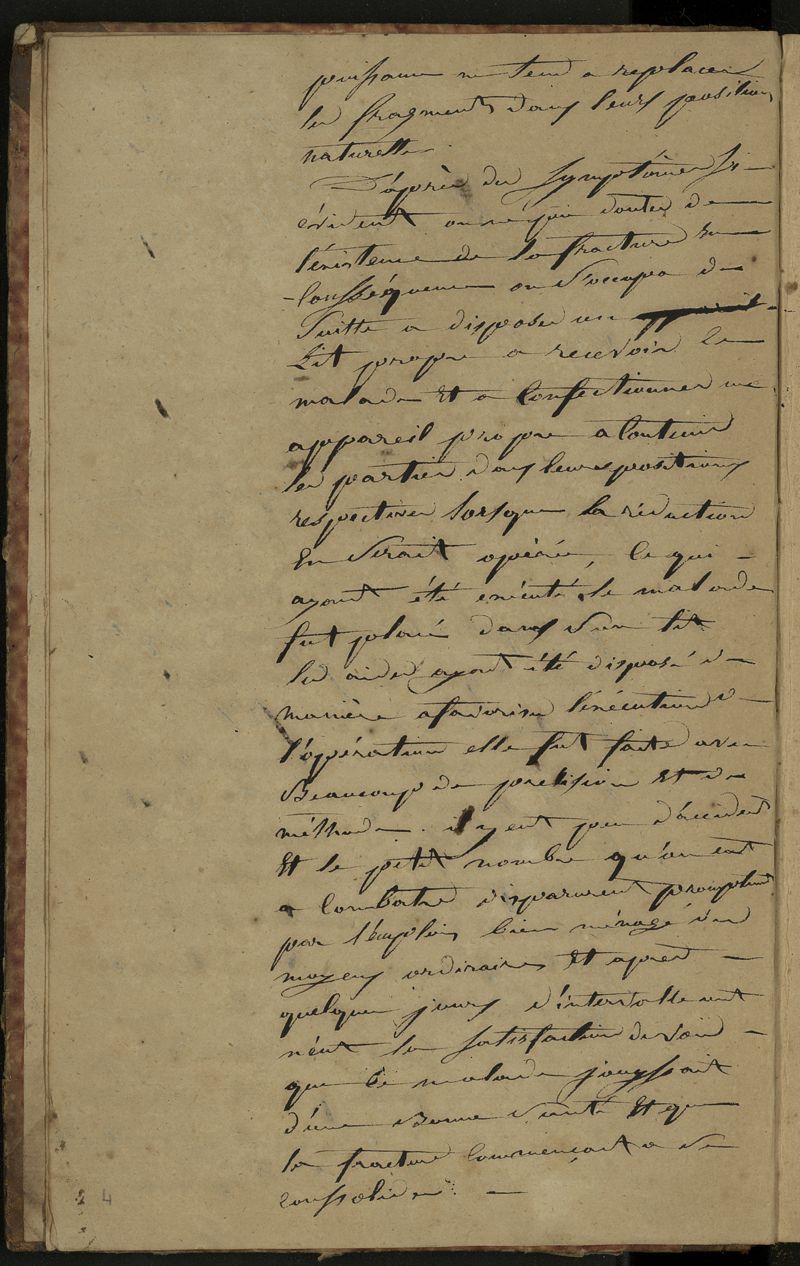 puissance ne tend a replacer
les fragments dans leurs positions
naturelles.
D'après des symptômes si
évident on ne put douter de
l'existence de la fracture En
Conséquence on s'occupa de
Suitte a disposer un
Lit propre a recevoir le
malade Et a Confectionner un
appareil propre a Contenir
les parties dans leurs positions
respectives lorsque la réduction
En Serait opérée, Ce qui
ayant été exécuté, le malade
fut placé dans Son lit
les aides ayant été disposé de
manière a favoriser l'exécution de
l'opération elle fut faite avec
Beaucoup de precision Et de
méthode. il y eut peu d'accident
Et le petit nombre qu'on eut
a Combatre disparurent promptement
par l'emplois bien ménagé des
moyens ordinaires Et apres
quelques jours d'intervalle ont
n'eut la satisfaction de voir
que le malade jouissait
d'une Bonne Santé Et que
la fracture Commençait a se
Consolider.
4